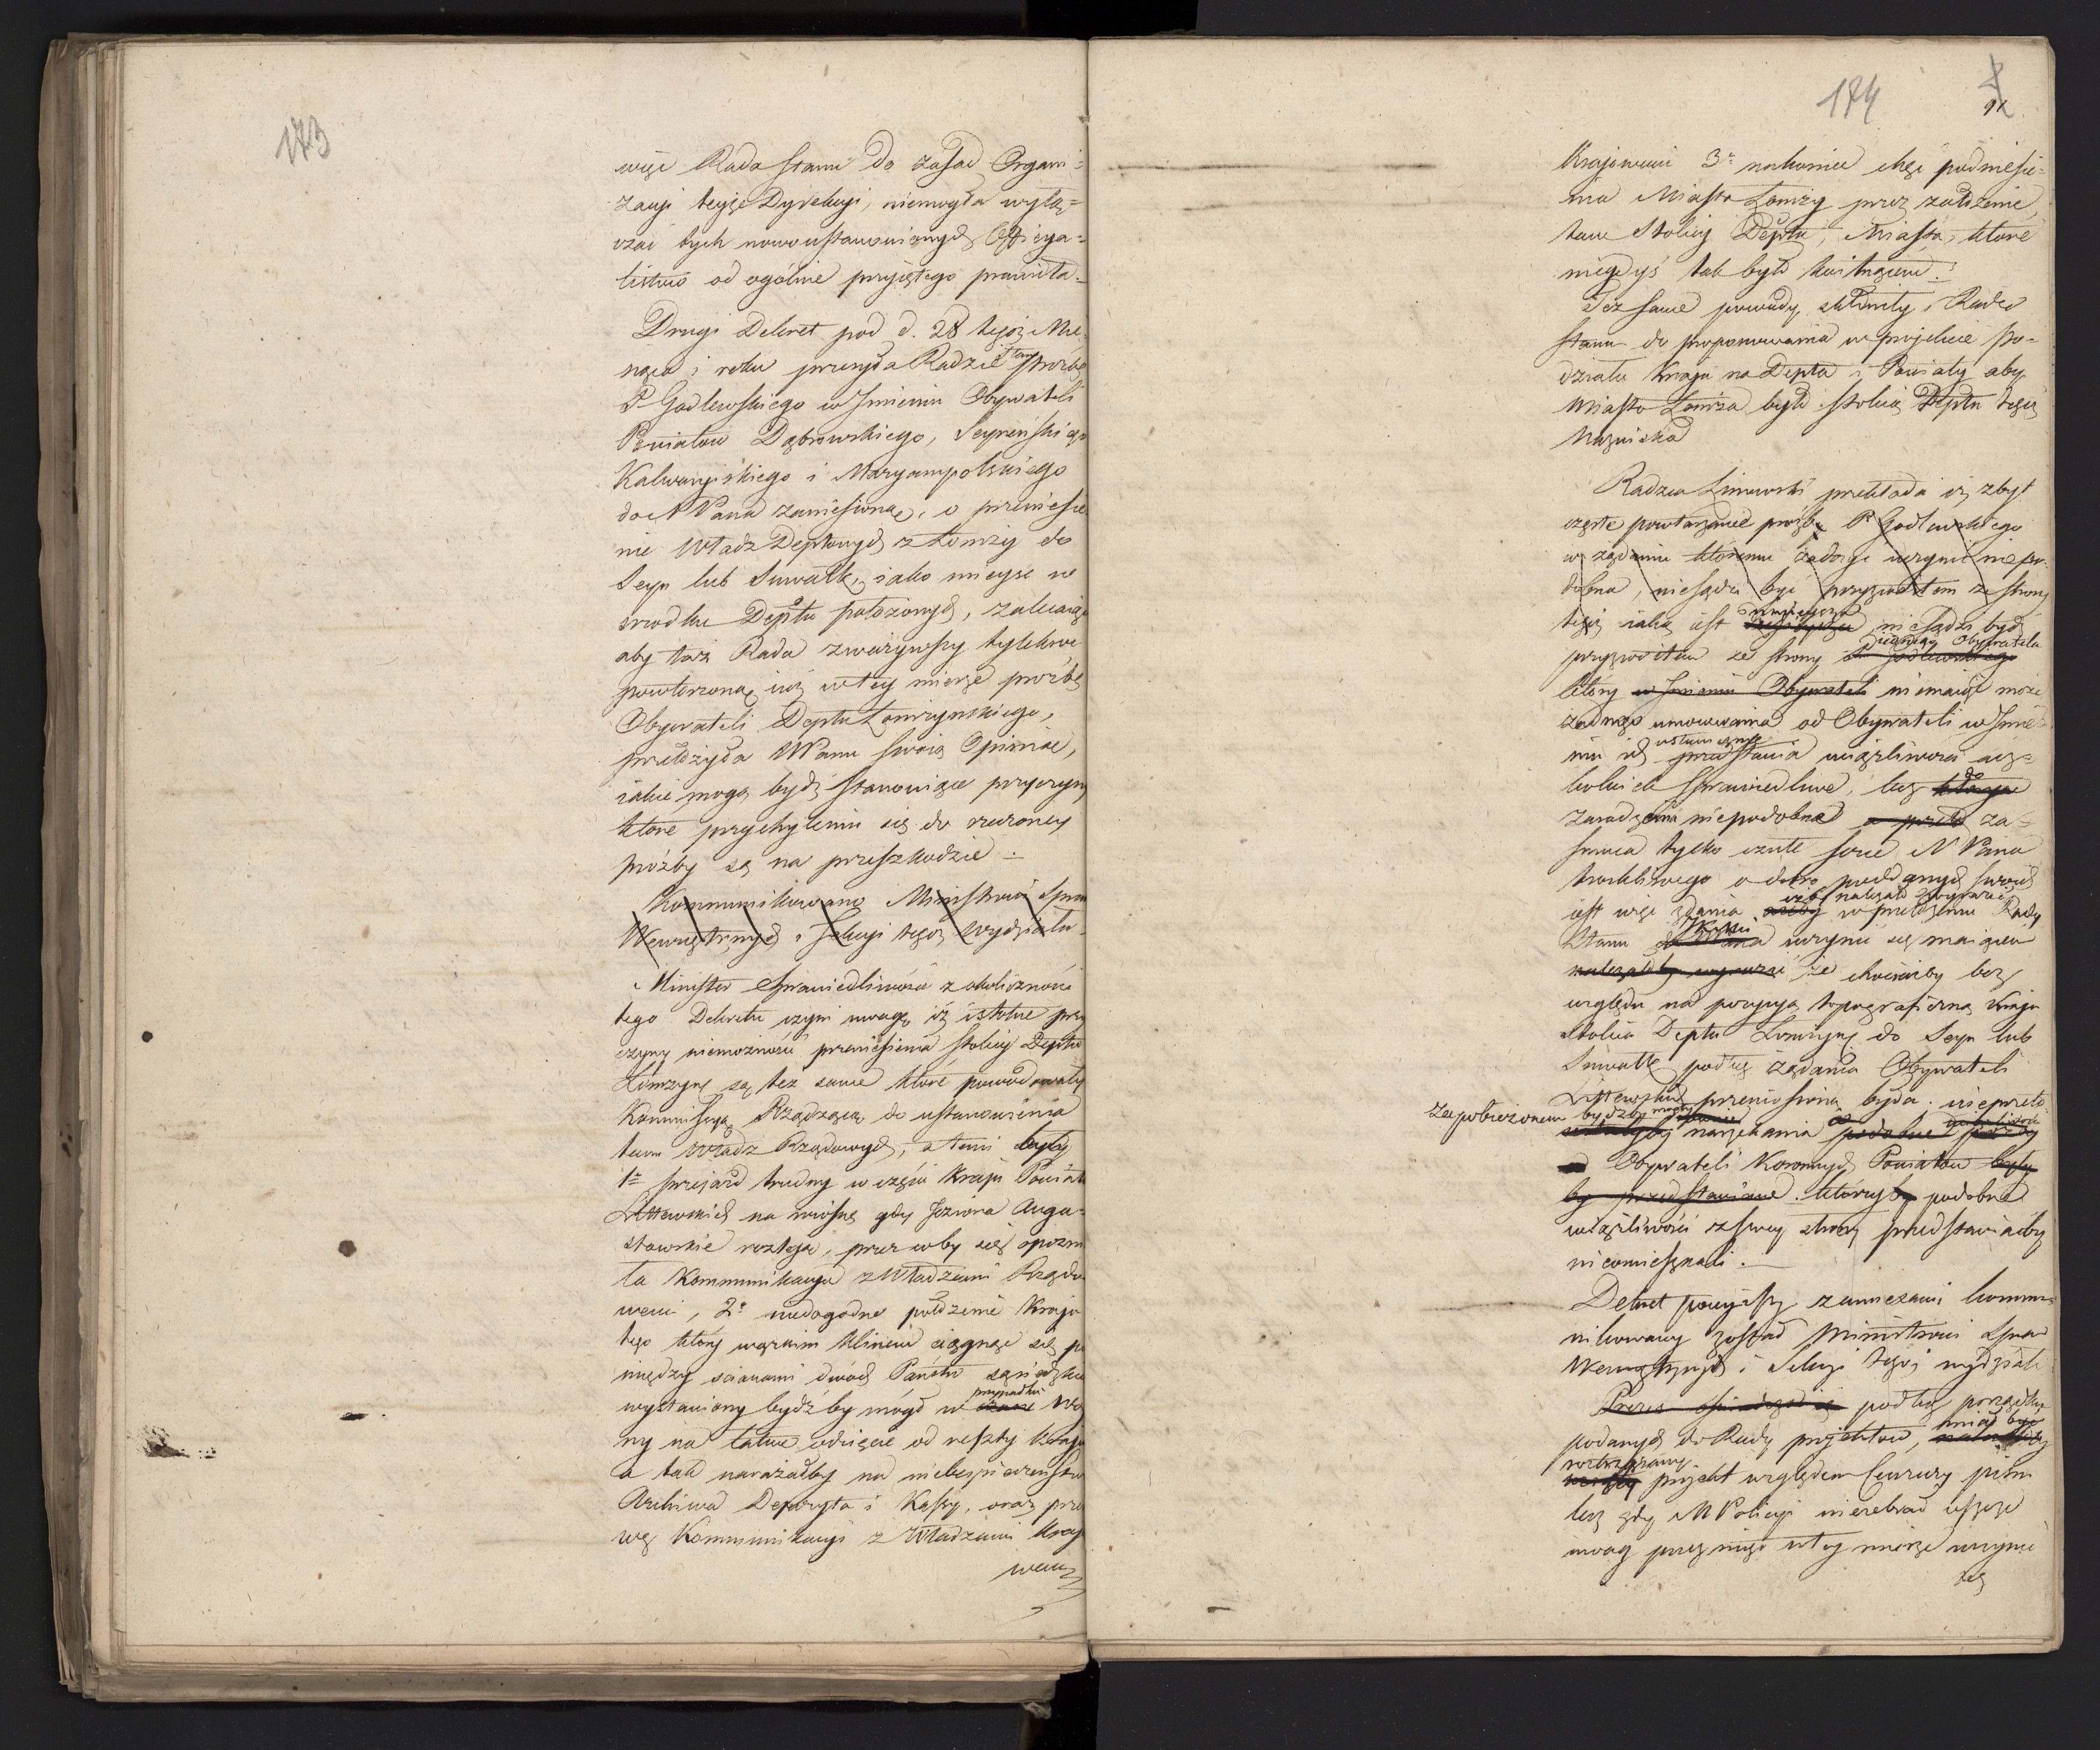 173
więc Rada Stanu do zasad Organi=
zacyi teyże Dyrekcyi, niemogła wyłą=
czać tych nowoustanowionych Officya=
listów od ogólnie przyiętego prawidła.
Drugi Dekret pod d. 28 tegoż Mie
siąca i roku przesyła Radzie Stanu prozbę
P Godlewskiego w Jmieniu Obywateli
Powiatów Dąbrowskiego, Seyneńskiego
Kalwaryiskiego i Maryampolskiego
do N Pana zaniesioną, o przeniesie
nie Władz Deptowych z Łomży do
Seyn lub Suwałk, iako mieysc w
srodku Deptu położonych, zalecaiąc
aby taż Rada zważywszy tylekroć
powtorzoną iuż w tey mierze prozbę
Obywateli Deptu Łomżynskiego,
przełożyła W Panu swoią Opinią,
iakie mogą bydź stanowiące przyczyny
które przychyleniu się do rzeczoney
prózby są na przeszkodzie.
Kommunikowano Ministrowi Spraw
Wewnętrznych i Sekcyi tegoż Wydziału
Minister Sprawiedliwości z okoliczności
tego Dekretu czyni uwagę iż istotne przy
czyny niemożności przeniesienia stolicy Deptu
Łomżyns. są też same które powodowały
Kommissyą Rządzącą do ustanowienia
tam Władz Rządowych, a temi były
1o przejazd trudny w części Kraju Powiat
Littewskich na wiosnę gdy Jeziora Augu=
stowskie rozleją, przez coby się opozni
ła Kommunikacya z Władzami Rządo
wemi, 2o niedogodne położenie Kraju
tego który wązkim klinem ciągnąc się po
między scianami dwóch Państw sąsiedzkich
przypadku
wystawiony bydźby mógł w czasie Woy
ny na łatwe odcięcie od reszty Kraju
a tak narażałby na niebespieczeństwo
Archiwa Depozyta i Kassy, oraz prze
wę Kommunikacyi z Władzami Kraj
wemi
174
Krajowemi 3o nakoniec chęć podniesie=
nia Miasta Łomży przez założenie
tam Stolicy Deptu, Miasta, które
niegdyś tak było kwitnące.
Też same powody skłoniły Radę
Stanu do proponowania w projekcie po=
działu Kraju na Depta i Powiaty aby
Miasto Łomża było stolicą Deptu tegoż
Nazwiska
Radzca Linowski przekłada iż zbyt
częste powtarzanie prózb P Godlewskiego
w żądaniu któremu zadosyć uczynić niepo=
dobna, niesądzi być przyzwoitem ze strony
teyże iaką iest niesądzi bydź
iednego Obywatela
przyzwoitem ze strony P Godlewskiego
który w Jmieniu Obywateli niemaiąc może
żadnego umocowania od Obywateli w Jmie=
niu ich przedstawia uciążliwości acz=
kolwiek sprawiedliwe, lecz do
zaradzenia niepodobne a przeto za=
smuca tylko czułe serce N Pana
troskliwego o dobro poddanych swoich
iest więc zdania w przełożeniu Rady
Stanu uczynić się maiącem
należałoby wyrazić że chociażby bez
względu na pozycyą topograficzną Kraju
Stolica Deptu Łomżyns. do Seyn lub
Suwałk podług żądania Obywateli
Littewskich przeniesiona była, nieprzeto
zapobieżonem bydźby mogły narzekania
Obywateli Koronnych Powiatów
by przedstawiane. któryby podobne
uciążliwości z swey strony przedstawiaćby
nieomieszkali.
Dekret powyższy zamieszani kommu=
nikowany został Ministrowi Spraw
Wewnętrznych i Sekcyi tegoż wydziału
Prezes oświadcza iż podług porządku
miał być
podanych do Rady projektów, należałoby
roztrząsany
projekt względem Cenzury pism
lecz gdy M Policyi niezebrał ieszcze
uwag przez niego w tey mierze uczynić
się